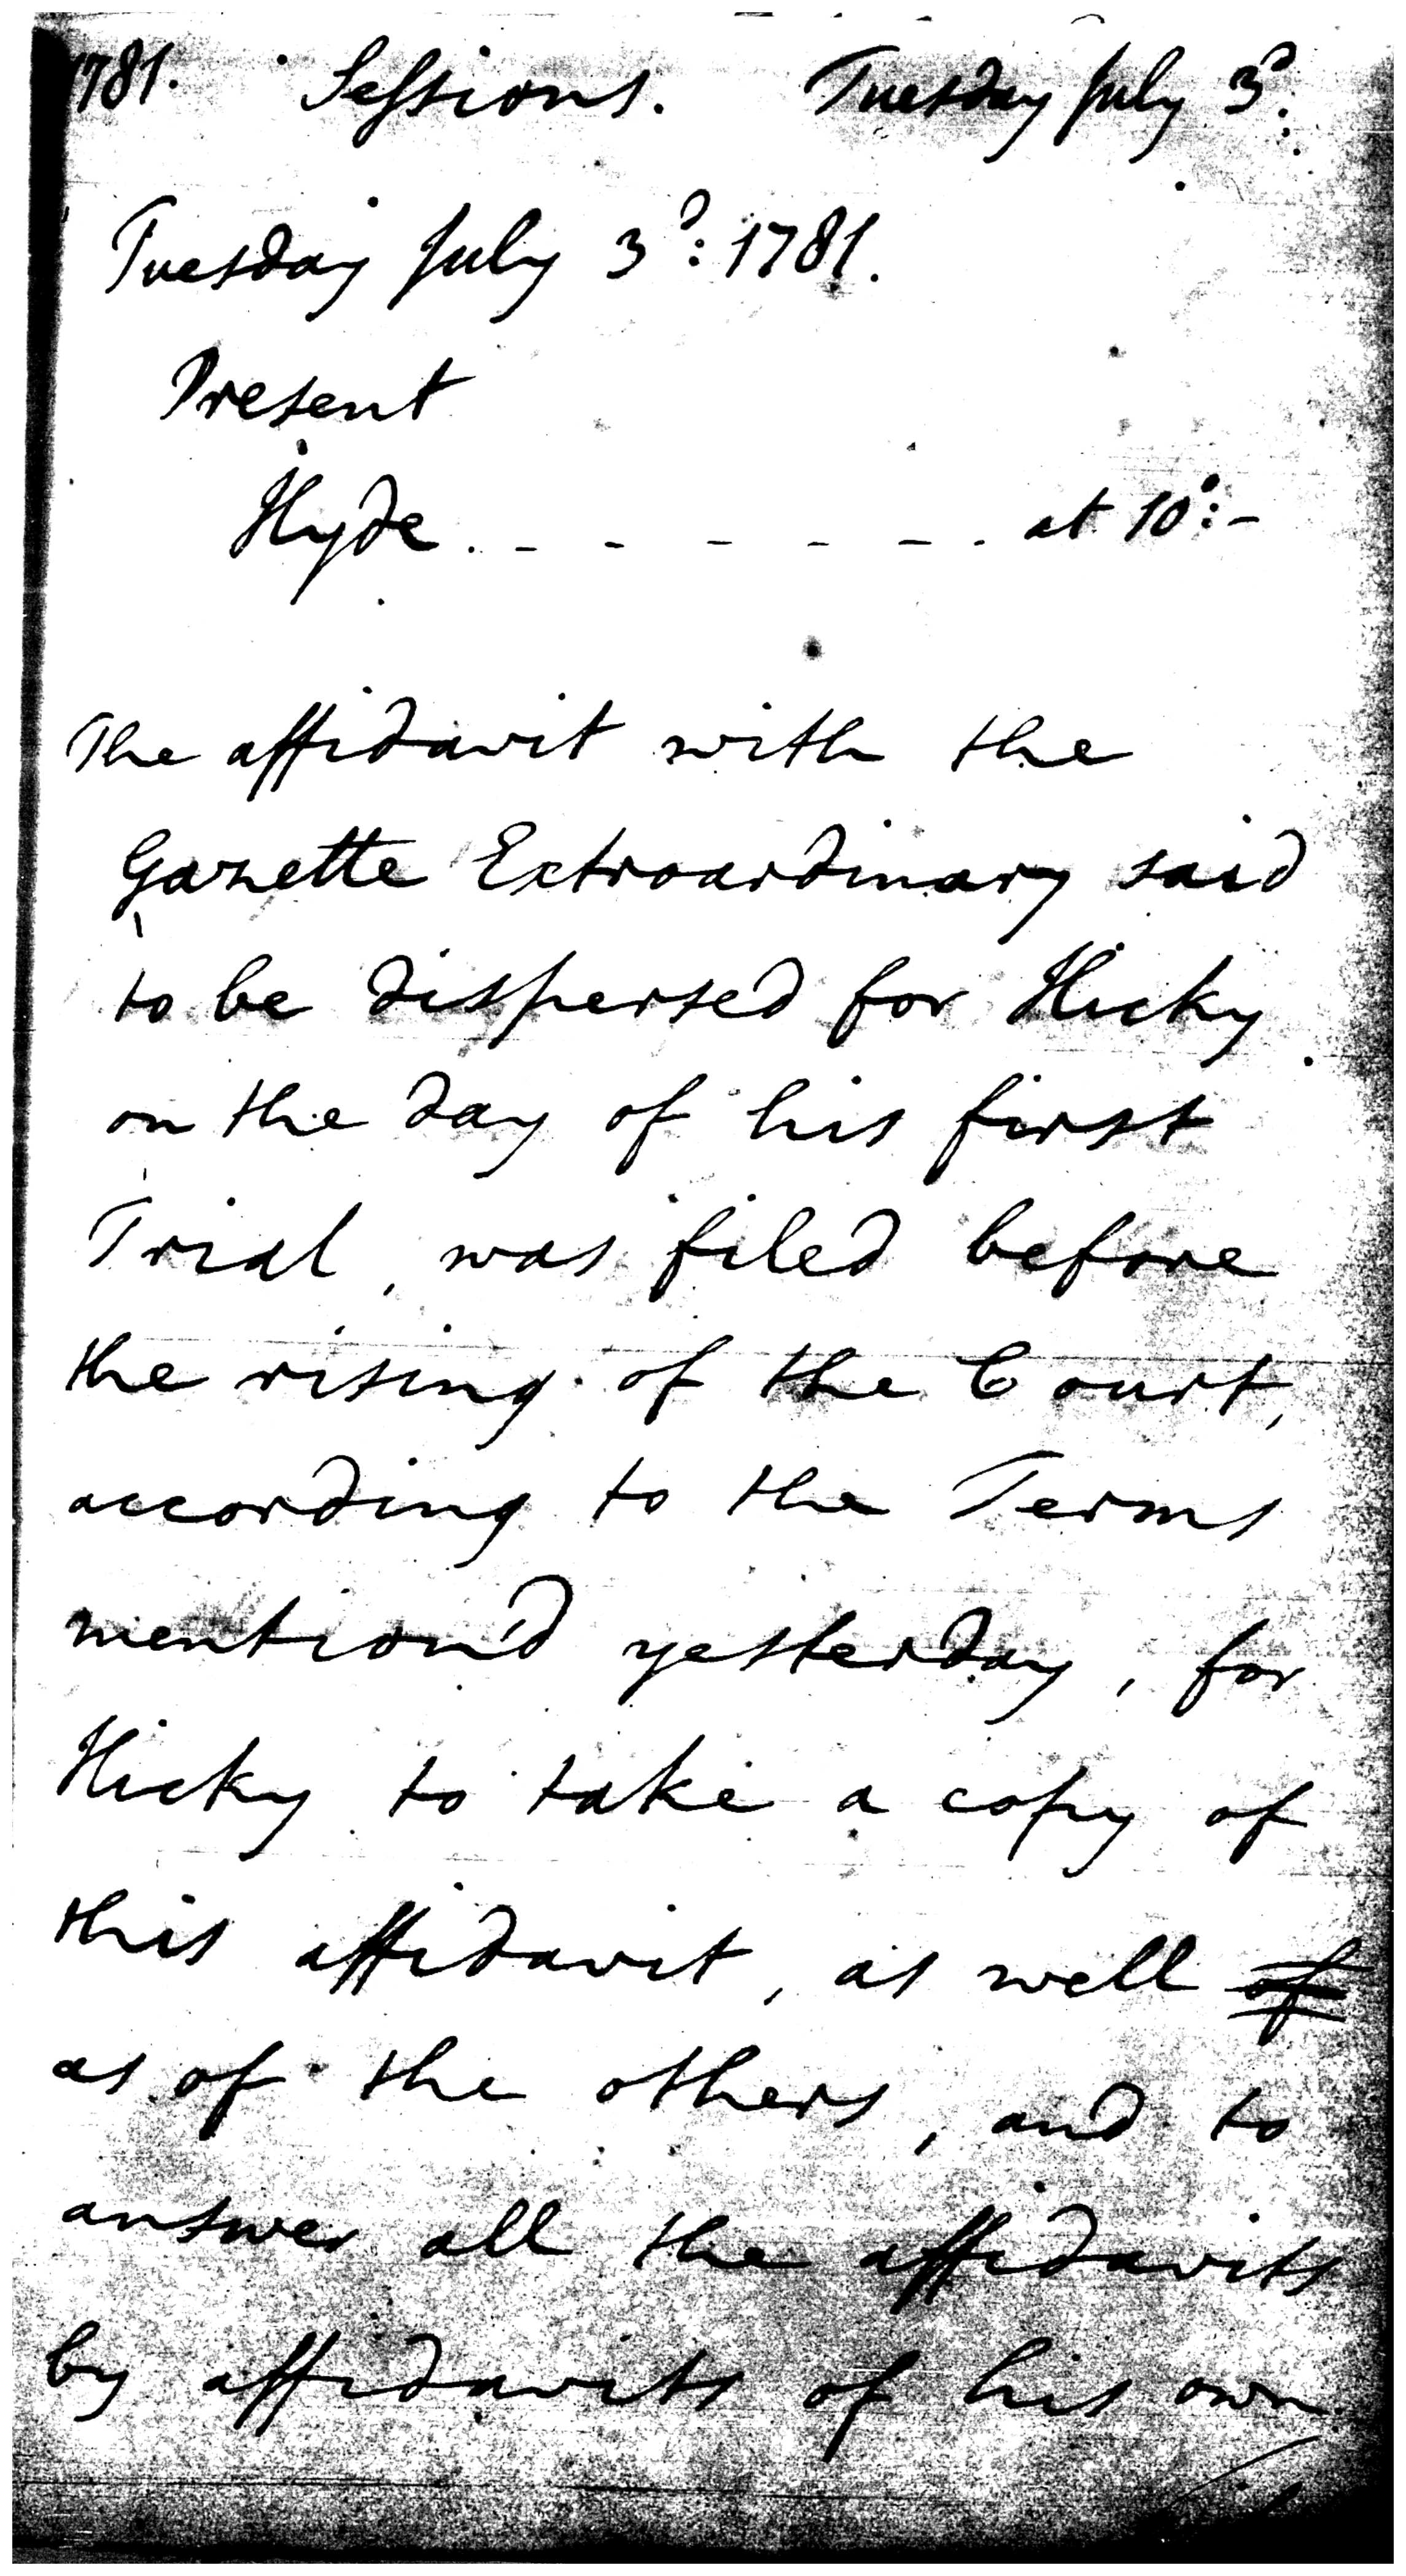 1781. Sessions. Tuesday July 3d:
Tuesday July 3d: 1781.
Present
Hyde. - - - - - . at 10°: -
The affidavit with the
Gazette Extroardinary said
to be dispersed for Hicky
on the day of his first
Trial, was filed before
the rising of the Court,
according to the Terms
mention'd yesterday, for
Hicky to take a copy of
this affidavit, as well of
as of the others, and to
answer all the affidavits
by affidavits of his own